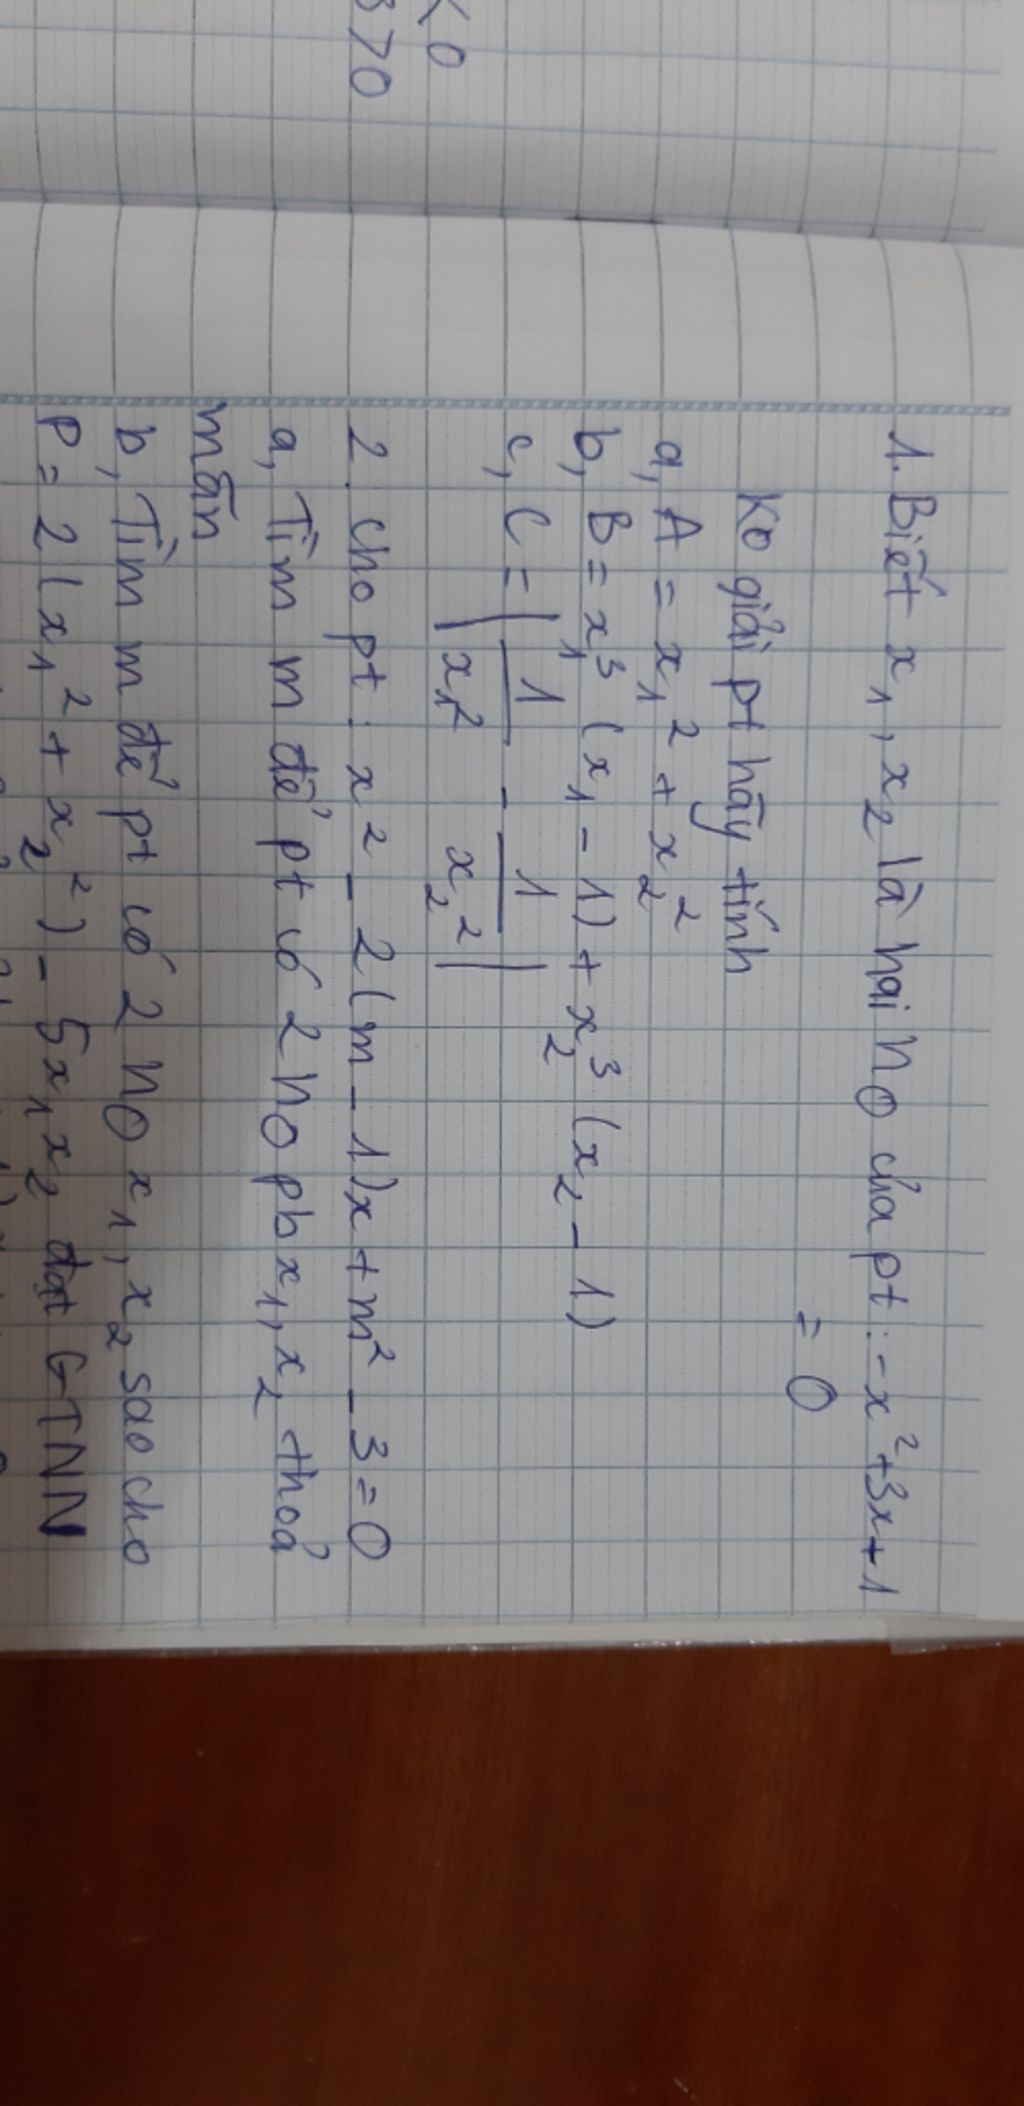 < 0
3 > 0
1. Biết x₁, x₂ là hai nº của pt: -x² + 3x + 1
= 0
Ko giải pt hãy tính
a, A = x₁² + x₂²
b, B = x₁³ (x₁ - 1) + x₂³ (x₂ - 1)
c, C = | 1/x₁² - 1/x₂² |
2. Cho pt: x² - 2(m - 1)x + m² - 3 = 0
a, Tìm m để pt có 2 nº pb x₁, x₂ thoả
mãn
b, Tìm m để pt có 2 nº x₁, x₂ sao cho
P = 2(x₁² + x₂²) - 5x₁x₂ đạt GTNN